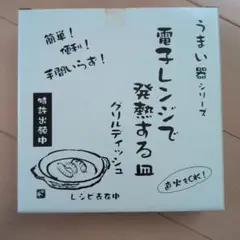 うまい器シリーズ
電子レンジで
発熱する皿
グリルディッシュ
簡単!
便利!
手間いらず!
特許出願中
レシピ表在中
直火もOK!